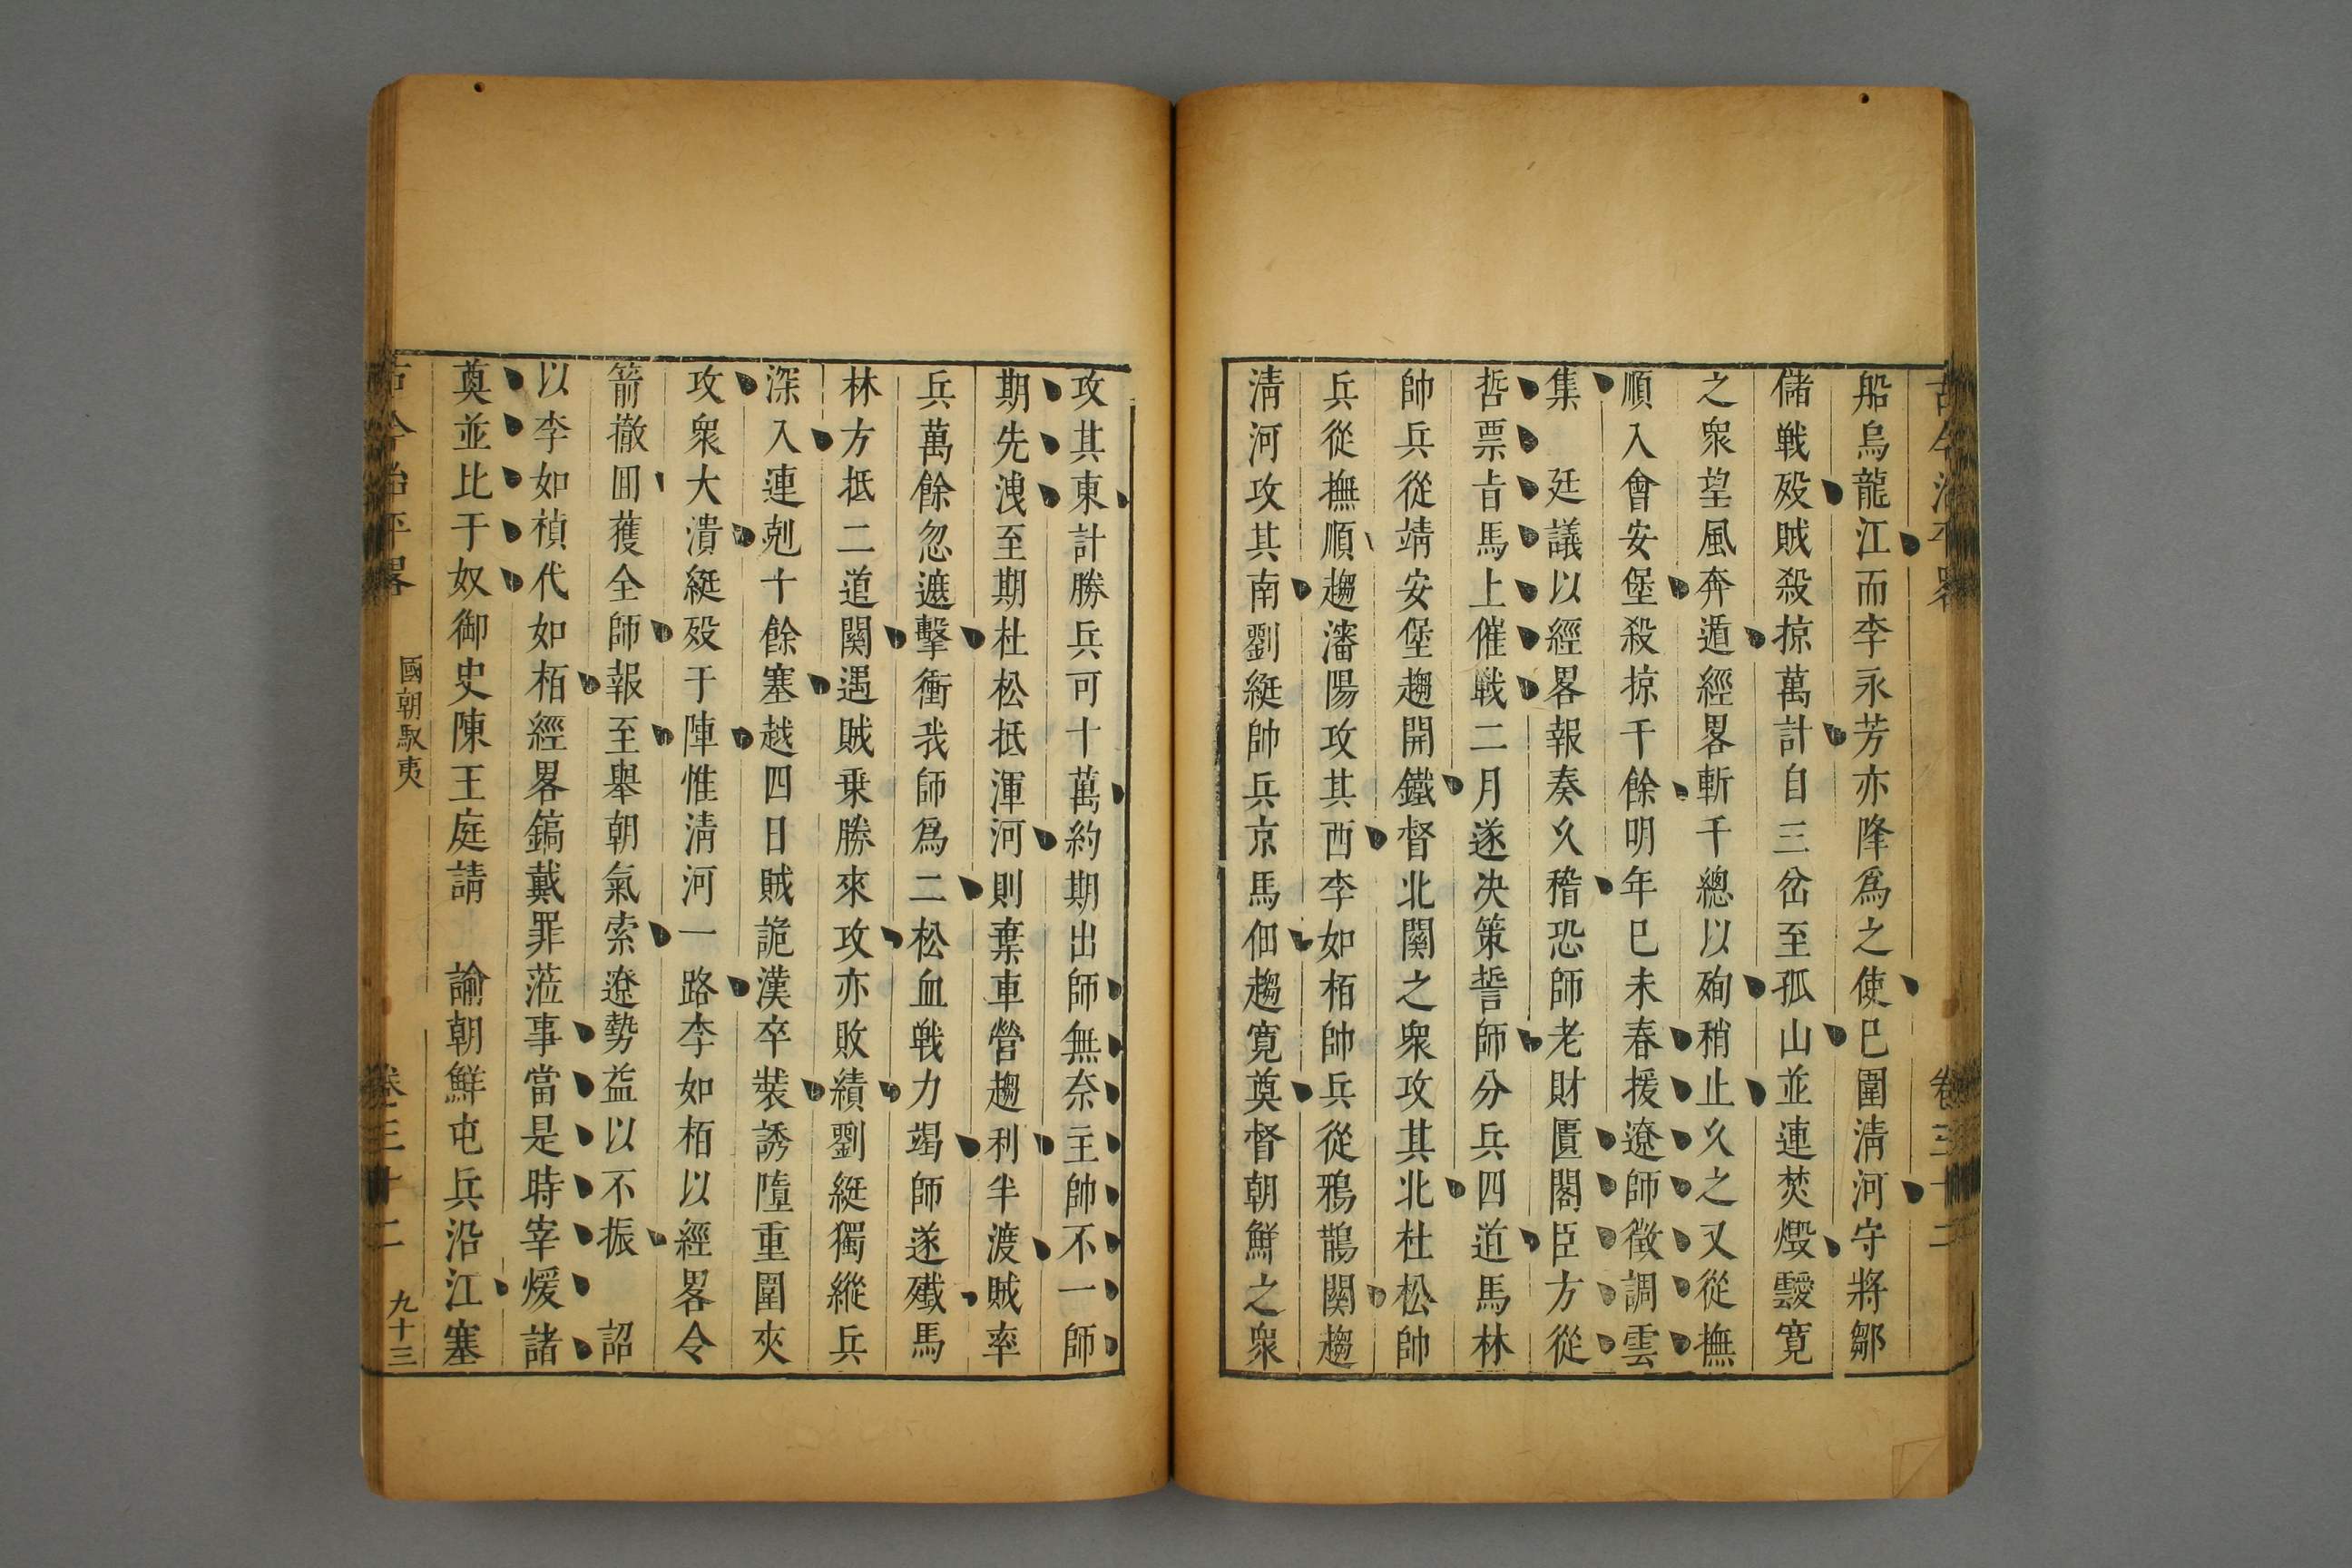 古今治平畧 卷三十二
船烏龍江而李永芳亦降爲之使巳圍淸河守將鄒
儲戦殁賊殺掠萬計自三岔至孤山並連焚燬靉寛
之衆望風奔遁經畧斬千總以殉稍止久之又從撫
順入會安堡殺掠千餘明年巳未春援遼師徵調雲
集 廷議以經畧報奏久稽恐師老財匱閣臣方從
哲票㫖馬上催戦二月遂决策誓師分兵四道馬林
帥兵從靖安堡趨開鐵督北関之衆攻其北杜松帥
兵從撫順趨瀋陽攻其西李如栢帥兵從鴉鶻關趨
淸河攻其南劉綎帥兵京馬佃趨寛奠督朝鮮之衆
攻其東計勝兵可十萬約期出師無奈主帥不一師
期先洩至期杜松抵渾河則棄車營趨利半渡賊率
兵萬餘忽遮擊衝我師爲二松血戦力竭師遂殱馬
林方抵二道關遇賊乗勝來攻亦敗績劉綎獨縱兵
深入連剋十餘塞越四日賊詭漢卒裝誘墮重圍夾
攻衆大潰綎殁于陣惟淸河一路李如栢以經畧令
箭撤囬獲全師報至舉朝氣索遼勢益以不振 詔
以李如楨代如栢經畧鎬戴罪蒞事當是時宰煖諸
奠並比于奴御史陳王庭請 諭朝鮮屯兵沿江塞
古今治平畧 國朝馭夷 卷三十二 九十三